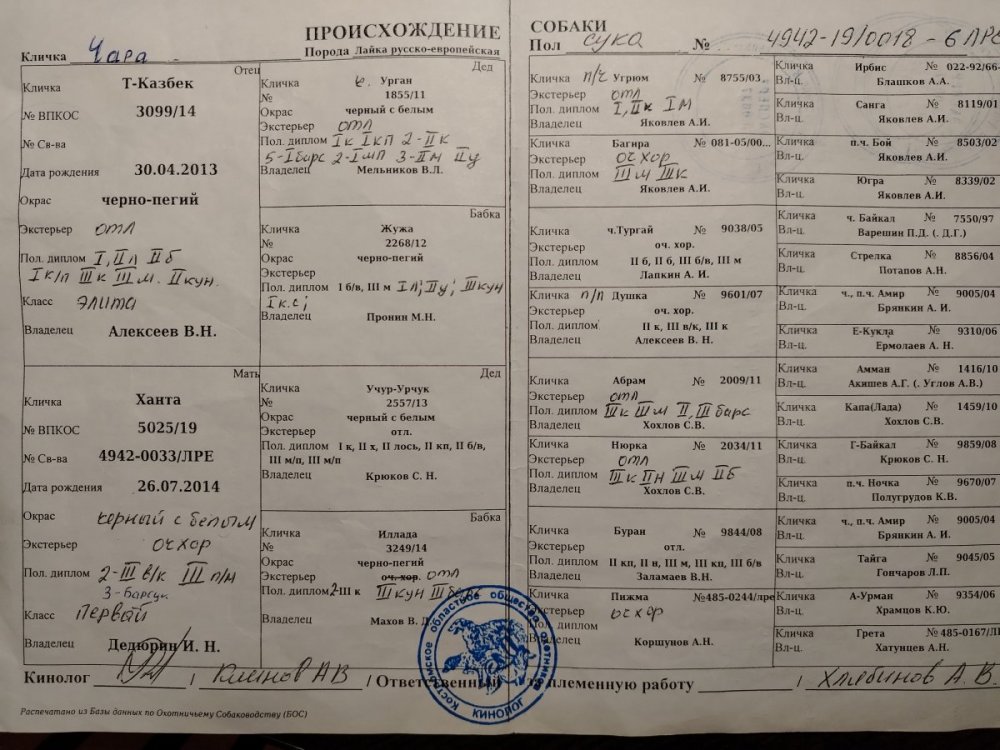 ПРОИСХОЖДЕНИЕ СОБАКИ
Кличка Чара Порода Лайка русско-европейская Пол сука № 4942-19/0018-6 ЛРЕ
Отец
Кличка Т-Казбек
№ ВПКОС 3099/14
№ Св-ва
Дата рождения 30.04.2013
Окрас черно-пегий
Экстерьер отл
Пол. диплом I, II л II б
I к/п III к III м. II кун.
Класс элита
Владелец Алексеев В.Н.
Мать
Кличка Ханта
№ ВПКОС 5025/19
№ Св-ва 4942-0033/ЛРЕ
Дата рождения 26.07.2014
Окрас черный с белым
Экстерьер оч хор
Пол. диплом 2-III в/к III п/м
3-барсук
Класс первый
Владелец Дедюрин И. Н.
Дед
Кличка ч. Урган
№ 1855/11
Окрас черный с белым
Экстерьер отл
Пол. диплом I к I кп 2-II к
5-I барс 2-I мп 3-II н II у
Владелец Мельников В.Л.
Бабка
Кличка Жужа
№ 2268/12
Окрас черно-пегий
Экстерьер
Пол. диплом I б/в, III м I л; II у; III кун
I к.с;
Владелец Пронин М.Н.
Дед
Кличка Учур-Урчук
№ 2557/13
Окрас черный с белым
Экстерьер отл.
Пол. диплом I к, II х, II лось, II кп, II б/в,
III м/п, III м/п
Владелец Крюков С. Н.
Бабка
Кличка Иллада
№ 3249/14
Окрас черно-пегий
Экстерьер оч. хор. отл
Пол. диплом 2-III к III кун III
Владелец Махов В.
Кличка п/ч Угрюм № 8755/03
Экстерьер отл
Пол. диплом I, II к I м
Владелец Яковлев А.И.
Кличка Багира № 081-05/00...
Экстерьер оч хор
Пол. диплом III м III к
Владелец Яковлев А.И.
Кличка ч.Тургай № 9038/05
Экстерьер оч. хор.
Пол. диплом II б, II б, III б/в, III м
Владелец Лапкин А. И.
Кличка п/п Душка № 9601/07
Экстерьер оч. хор.
Пол. диплом II к, III в/к, III к
Владелец Алексеев В. Н.
Кличка Абрам № 2009/11
Экстерьер отл
Пол. диплом III к III м II, III барс
Владелец Хохлов С.В.
Кличка Нюрка № 2034/11
Экстерьер отл
Пол. диплом III к II н III м II б
Владелец Хохлов С.В.
Кличка Буран № 9844/08
Экстерьер отл.
Пол. диплом II кп, II н, III м, III кп, III б/в
Владелец Заламаев В.Н.
Кличка Пижма №485-0244/лре
Экстерьер оч хор
Пол. диплом
Владелец Коршунов А.Н.
Кличка Ирбис № 022-92/66-
Вл-ц. Блашков А.А.
Кличка Санга № 8119/01
Вл-ц. Яковлев А.И.
Кличка п.ч. Бой № 8503/02
Вл-ц. Яковлев А.И.
Кличка Югра № 8339/02
Вл-ц. Яковлев А.И.
Кличка ч. Байкал № 7550/97
Вл-ц. Варешин П.Д. (. Д.Г.)
Кличка Стрелка № 8856/04
Вл-ц. Потапов А.Н.
Кличка ч., п.ч. Амир № 9005/04
Вл-ц. Брянкин А. И.
Кличка Е-Кукла № 9310/06
Вл-ц. Ермолаев А. Н.
Кличка Амман № 1416/10
Вл-ц. Акишев А.Г. (. Углов А.В.)
Кличка Капа(Лада) № 1459/10
Вл-ц. Хохлов С.В.
Кличка Г-Байкал № 9859/08
Вл-ц. Крюков С. Н.
Кличка п.ч. Ночка № 9670/07
Вл-ц. Полугрудов К.В.
Кличка ч., п.ч. Амир № 9005/04
Вл-ц. Брянкин А. И.
Кличка Тайга № 9045/05
Вл-ц. Гончаров Л.П.
Кличка А-Урман № 9354/06
Вл-ц. Храмцов К.Ю.
Кличка Грета № 485-0167/ЛР
Вл-ц. Хатунцев А.Н.
Кинолог / А В / Ответственный племенную работу / Хлябинов А. В.
Костромское областное общество охотников
КИНОЛОГ
Распечатано из Базы данных по Охотничьему Собаководству (БОС)